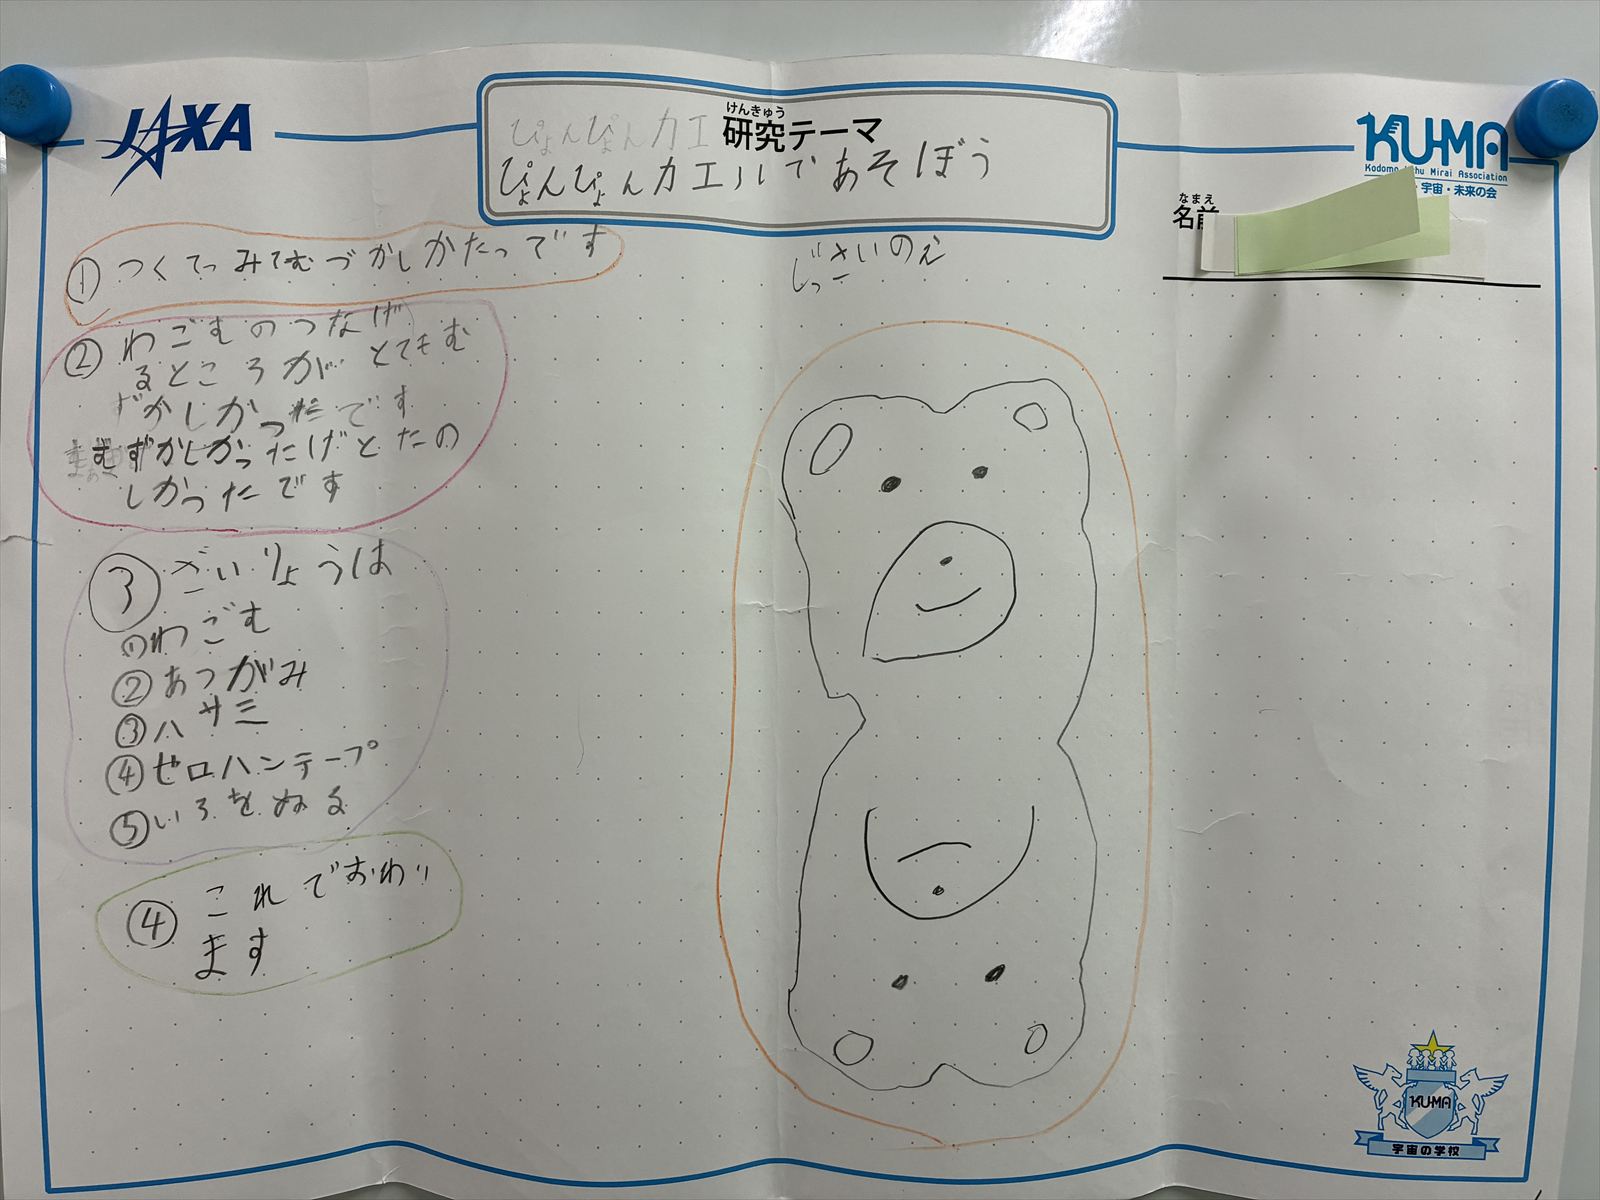 JAXA
けんきゅう
ぴょんぴょんカエ 研究テーマ
ぴょんぴょんカエルであそぼう
KU-MA
Mirai Association
宇宙・未来の会
なまえ
名前
① つくてっみてむづかしかたっです
② わごむのつなげ
るところがとてもむ
ずかしかったです
むずかしかったげとたの
しかったです
③ ざいりょうは
①わごむ
②あつがみ
③ハサミ
④ゼロハンテープ
⑤いろをぬる
④ これでおわり
ます
じっさいのえ
KU-MA
宇宙の学校